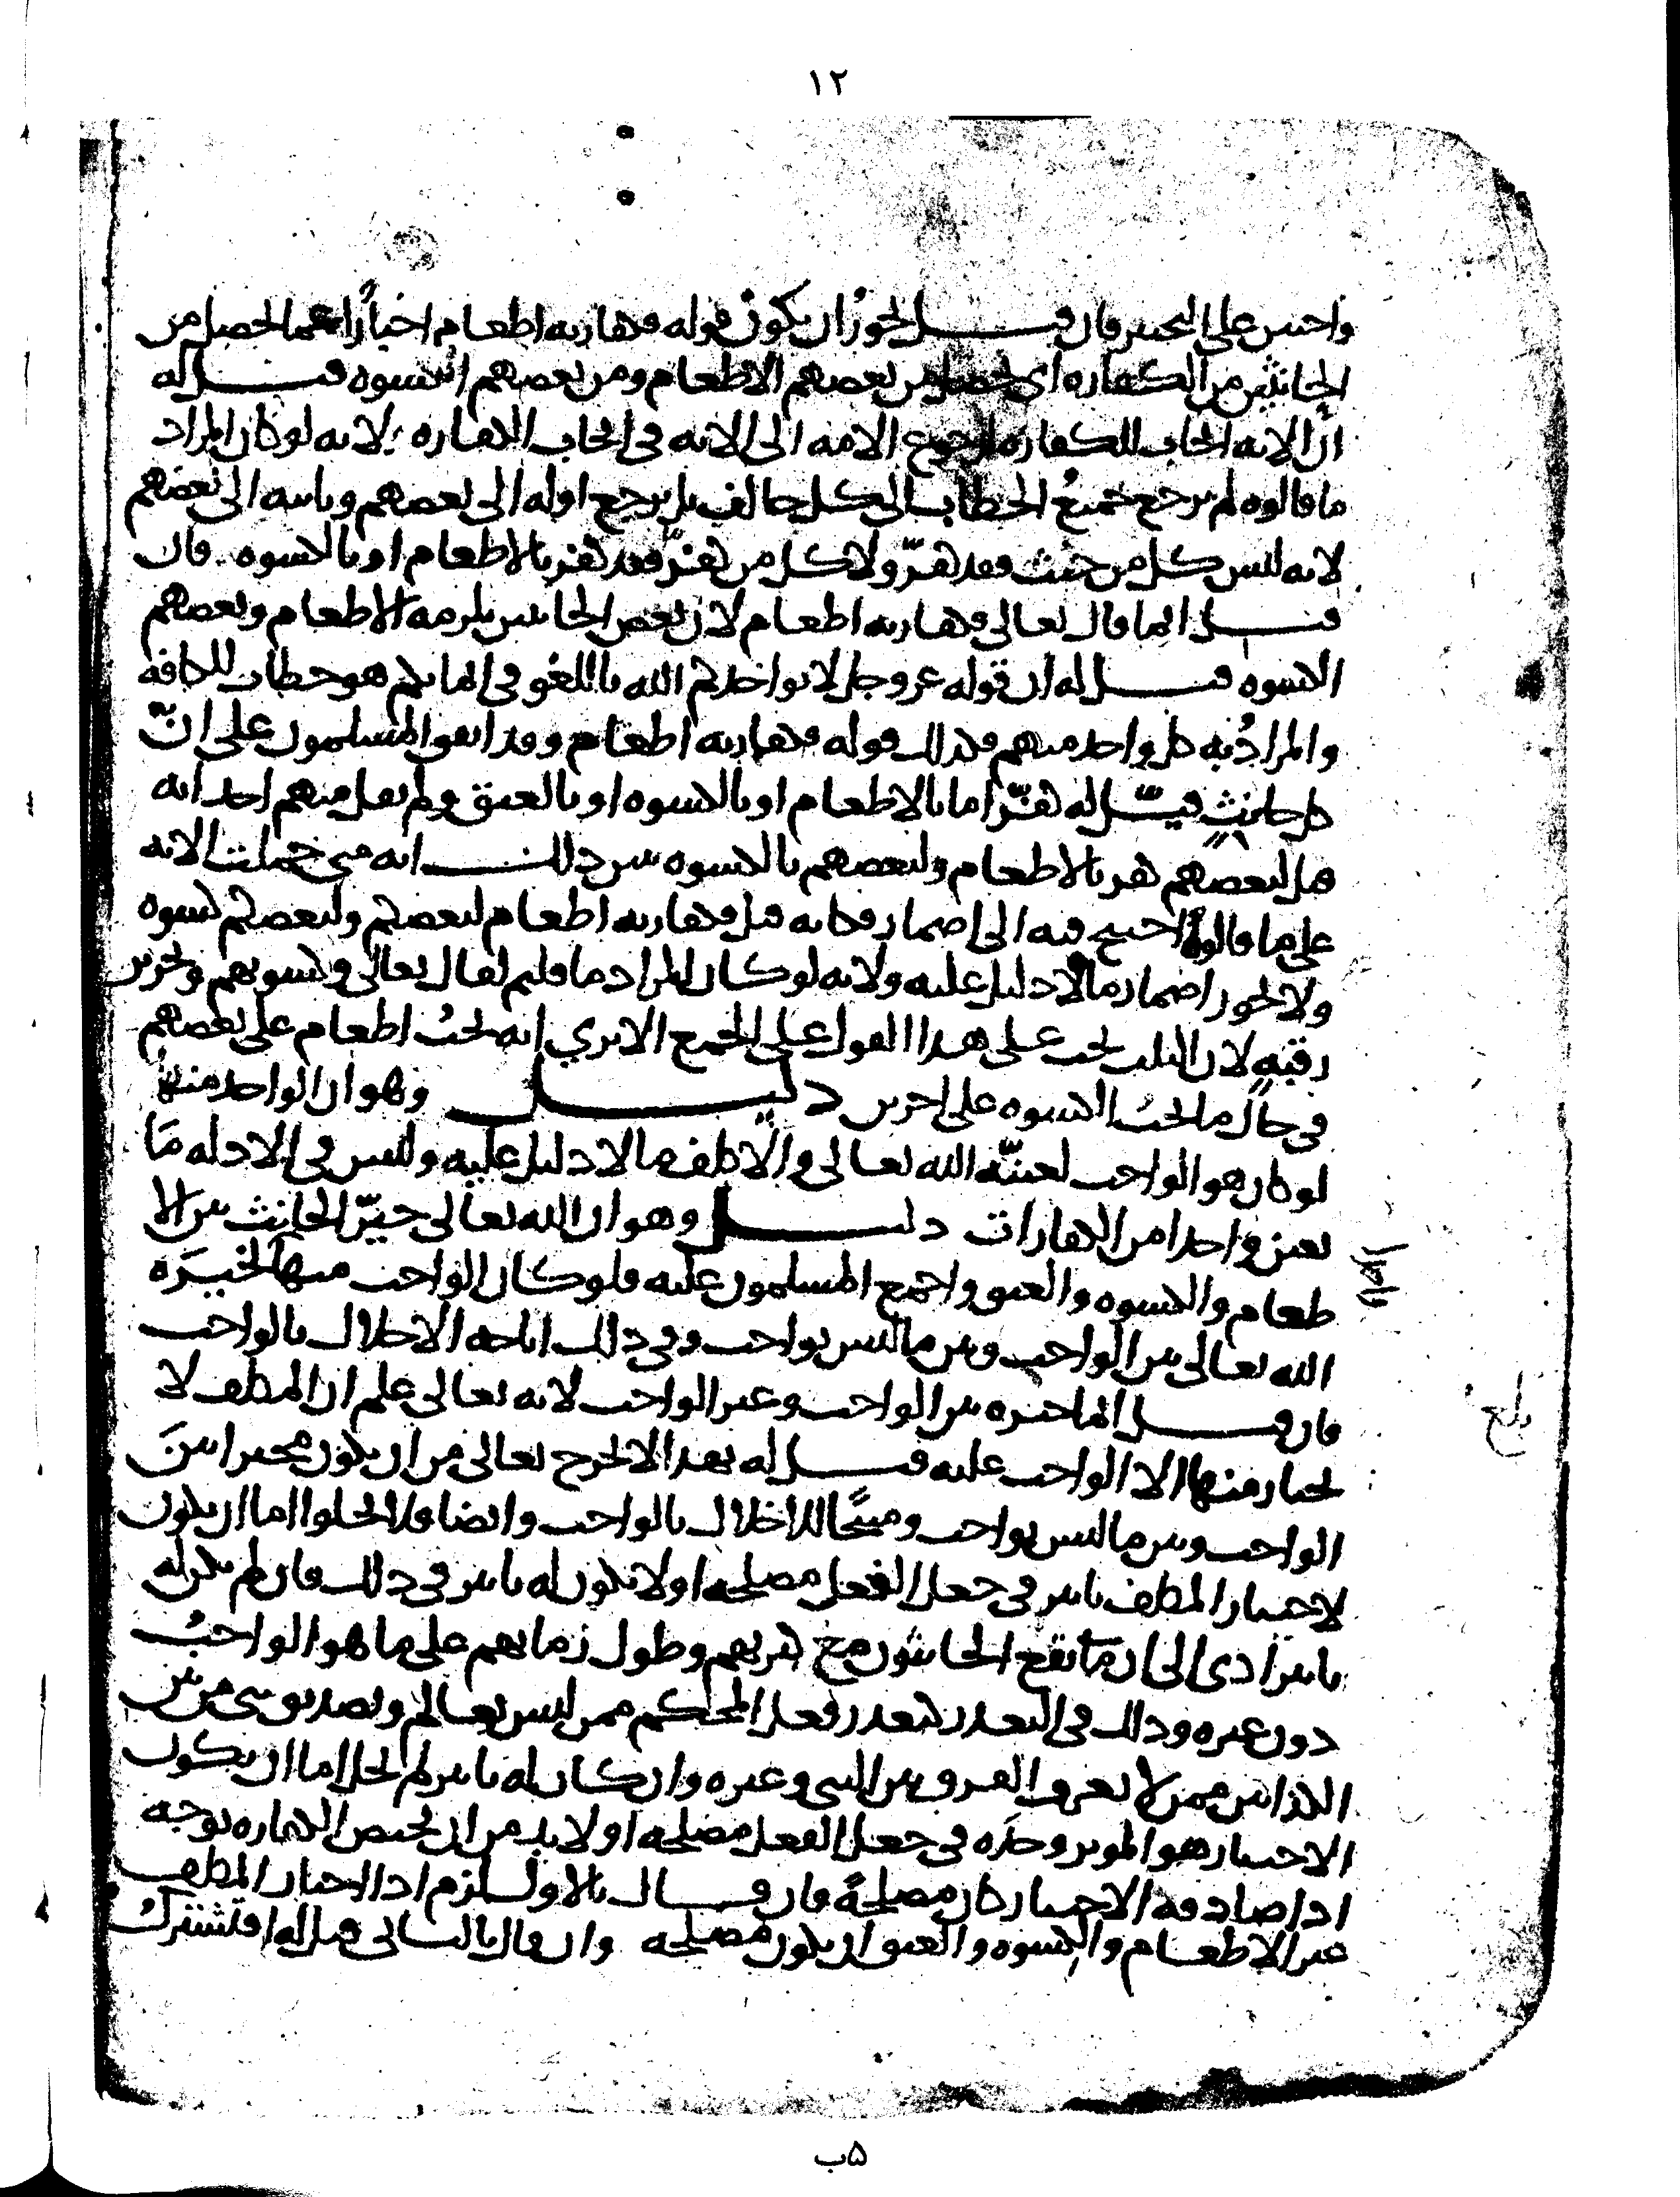 ١٢
واجبين على التخيير فان قيل يجوز ان يكون قوله فكفارته اطعام اخبارًا عما يحصل من
الحانثين من الكفاره اى يحصل من بعضهم الاطعام ومن بعضهم الكسوه قيل له
ان الايه ايجاب للكفاره لرجوع الامه الى الايه في ايجاب الكفاره ولانه لو كان المراد
ما قالوه لم يرجع جميع الخطاب الى كل حالف بل يرجع اوله الى بعضهم وثانيه الى بعضهم
لانه ليس كل من حنث فقد كفّر ولا كل من كفّر فقد كفر بالاطعام او بالكسوه فان
قيل انما قال تعالى فكفارته اطعام لان بعض الحانثين يلزمه الاطعام وبعضهم
الكسوه قيل له ان قوله عز وجل لا يواخذكم الله باللغو في ايمانكم هو خطاب للكافه
والمراد به كل واحد منهم فكذلك قوله فكفارته اطعام وقد اتفق المسلمون على انّ
كل حانث قيل له كفّر اما بالاطعام او بالكسوه او بالعتق ولم يقل منهم احد انه
قيل لبعضهم كفر بالاطعام ولبعضهم بالكسوه يبين ذلك انه متى حملت الايه
على ما قالوه احتيج فيه الى اضمار فكانه قيل فكفارته اطعام لبعضكم ولبعضكم كسوه
ولا يجوز اضمار ما لا دليل عليه ولانه لو كان المراد ما قلتم لقال تعالى وكسوتهم وتحرير
رقبه لان الثلث تجب على هذا القول على الجمع الا ترى انه يجب اطعام على بعضهم
في حال ما تجب الكسوه على اخرين دليل وهو ان الواحد منها
لو كان هو الواجب لعينّه الله تعالى والا كلف ما لا دليل عليه وليس في الادله ما
يعين واحدا من الكفارات دليل وهو ان الله تعالى خيّر الحانث بين الا
طعام والكسوه والعتق واجمع المسلمون عليه فلو كان الواجب منها لخيره
الله تعالى بين الواجب وبين ما ليس بواجب وفي ذلك اباحه الاخلال بالواجب
فان قيل انما خيره بين الواجب وغير الواجب لانه تعالى علم ان المكلف لا
يختار منها الا الواجب عليه قيل له بهذا لا يخرج تعالى من ان يكون مخيرا بين
الواجب وبين ما ليس بواجب ومبيحًا للاخلال بالواجب وايضا فلا يخلوا اما ان يكون
لاختيار المكلف تاثير في جعل الفعل مصلحه او لا يكون له تاثير في ذلك فان لم يكن له
تاثير ادى الى ان ما يقع الحانثون مع كثرتهم وطول زمانهم على ما هو الواجب
دون غيره وذلك في التعذر كتعذر فعل المحكم ممن ليس بعالم وتصديق نبى من بين
الكذابين ممن لا يعرف الفرق بين النبى وغيره وان كان له تاثير لم يخل اما ان يكون
الاختيار هو الموثر وحده في جعل الفعل مصلحه او لا بد من ان يختص الكفاره بوجه
اذا صادفه الاختيار كان مصلحةً فان قال بالاول لزم اذا اختار المكلف
غير الاطعام والكسوه والعتق ان يكون مصلحه وان قال بالثانى قيل له افتشترك
بلغ
٥ب